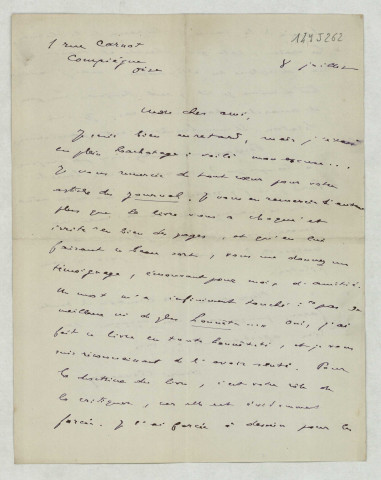 189J262
1 rue Carnot
Compiègne
Oise
8 juillet
Mon cher ami,
Je suis bien en retard, mais j'étais
en plein barbotage : voilà mon excuse...
Je vous remercie de tout cœur pour votre
article du Journal. Je vous en remercie d'autant
plus que le livre vous a choqué et
irrité en bien des pages, et qu'en lui
faisant ce beau sort, vous me donnez un
témoignage, émouvant pour moi, d'amitié.
Un mot m'a infiniment touché : "pas de
meilleur ni de plus honnête" Oui, j'ai
fait ce livre en toute honnêteté, et je vous
suis reconnaissant de l'avoir senti. Pour
la doctrine du livre, c'est votre rôle de
la critiquer, car elle est évidemment
forcée. Je l'ai forcée à dessein pour les